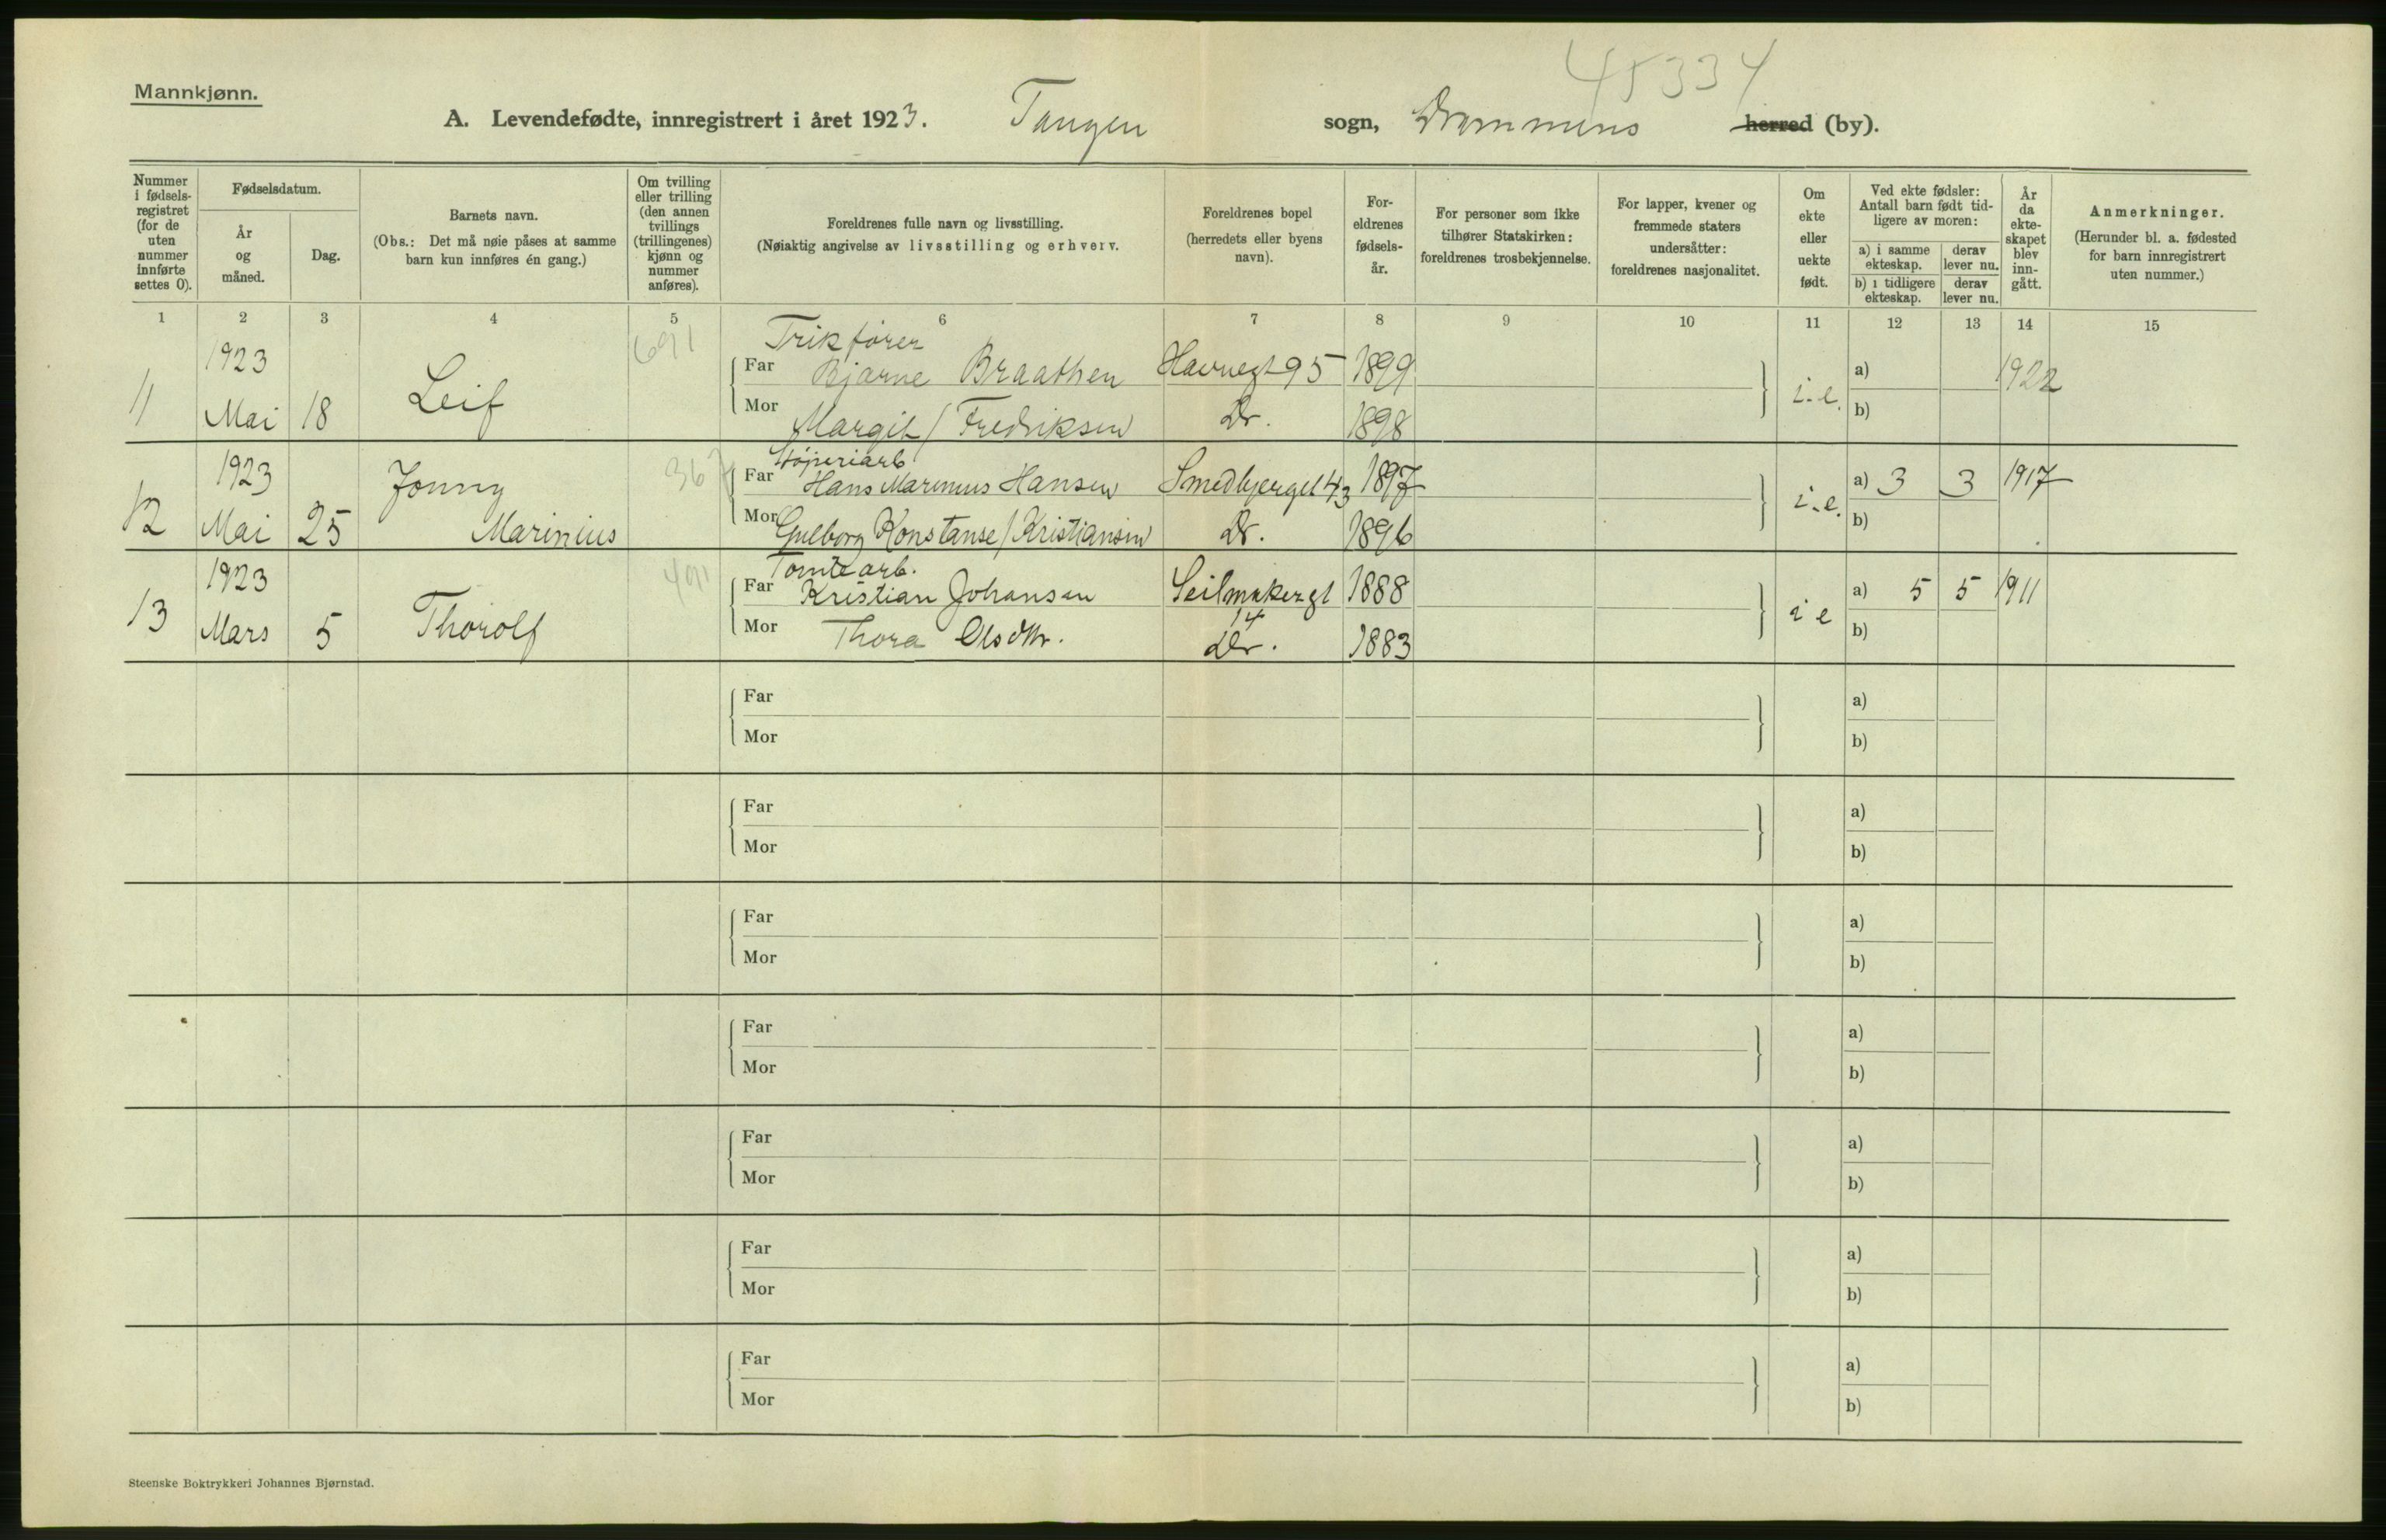 45334
Mannkjønn.
A. Levendefødte, innregistrert i året 1923. Tangen sogn, Drammens herred (by).
Nummer i fødsels-registret (for de uten nummer innførte settes 0).
Fødselsdatum.
År og måned.
Dag.
Barnets navn.
(Obs.: Det må nøie påses at samme barn kun innføres én gang.)
Om tvilling eller trilling (den annen tvillings (trillingenes) kjønn og nummer anføres).
Foreldrenes fulle navn og livsstilling.
(Nøiaktig angivelse av livsstilling og erhverv.
Foreldrenes bopel (herredets eller byens navn).
For-eldrenes fødsels-år.
For personer som ikke tilhører Statskirken: foreldrenes trosbekjennelse.
For lapper, kvener og fremmede staters undersåtter: foreldrenes nasjonalitet.
Om ekte eller uekte født.
Ved ekte fødsler: Antall barn født tid-ligere av moren:
a) i samme ekteskap.
derav lever nu.
b) i tidligere ekteskap.
derav lever nu.
År da ekte-skapet blev inn-gått.
Anmerkninger.
(Herunder bl. a. fødested for barn innregistrert uten nummer.)
1 2 3 4 5 6 7 8 9 10 11 12 13 14 15
691 Trikfører
1923 Far Bjarne Braathen Havnegt 95 1899 a) 1922
11 Mai 18 Leif Mor Margit / Fredriksen Dr. 1898 i.e. b)
1923 Jonny 367 Far Hans Marinius Hansen Smedbjerget 43 1897 a) 3 3 1917
12 Mai 25 Marinius Mor Gulborg Konstanse / Kristiansen Dr. 1896 i.e. b)
Tomtearb.
1923 491 Far Kristian Johansen Seilmakergt 14 1888 a) 5 5 1911
13 Mars 5 Thorolf Mor Thora Olsdtr. Dr. 1883 i e b)
Far a)
Mor b)
Far a)
Mor b)
Far a)
Mor b)
Far a)
Mor b)
Far a)
Mor b)
Far a)
Mor b)
Far a)
Mor b)
Steenske Boktrykkeri Johannes Bjørnstad.